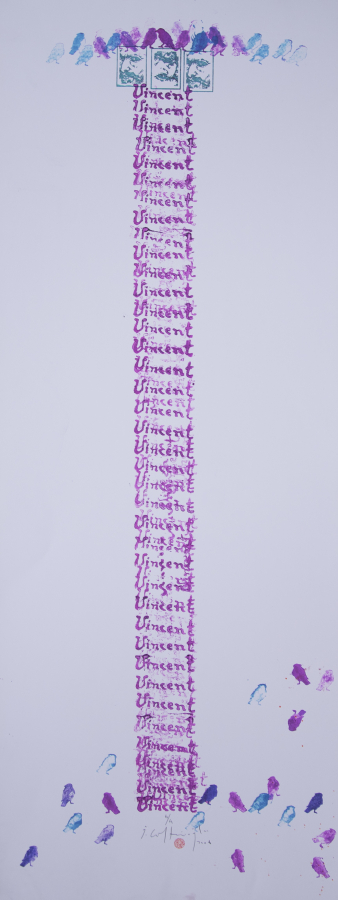 Vincent
Vincent
Vincent
Vincent
Vincent
Vincent
Vincent
Vincent
Vincent
Vincent
Vincent
Vincent
Vincent
Vincent
Vincent
Vincent
Vincent
Vincent
Vincent
Vincent
Vincent
Vincent
Vincent
Vincent
Vincent
Vincent
Vincent
Vincent
Vincent
Vincent
Vincent
Vincent
Vincent
Vincent
Vincent
Vincent
Vincent
Vincent